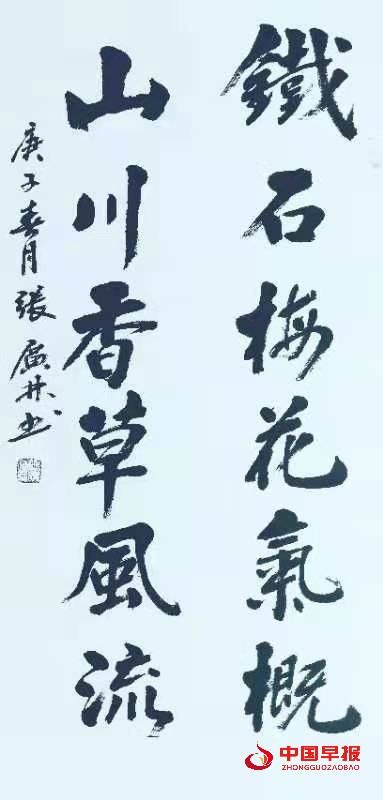 鐵石梅花氣概
山川香草風流
庚子春月張廣林书
中国早报
ZHONGGUOZAOBAO